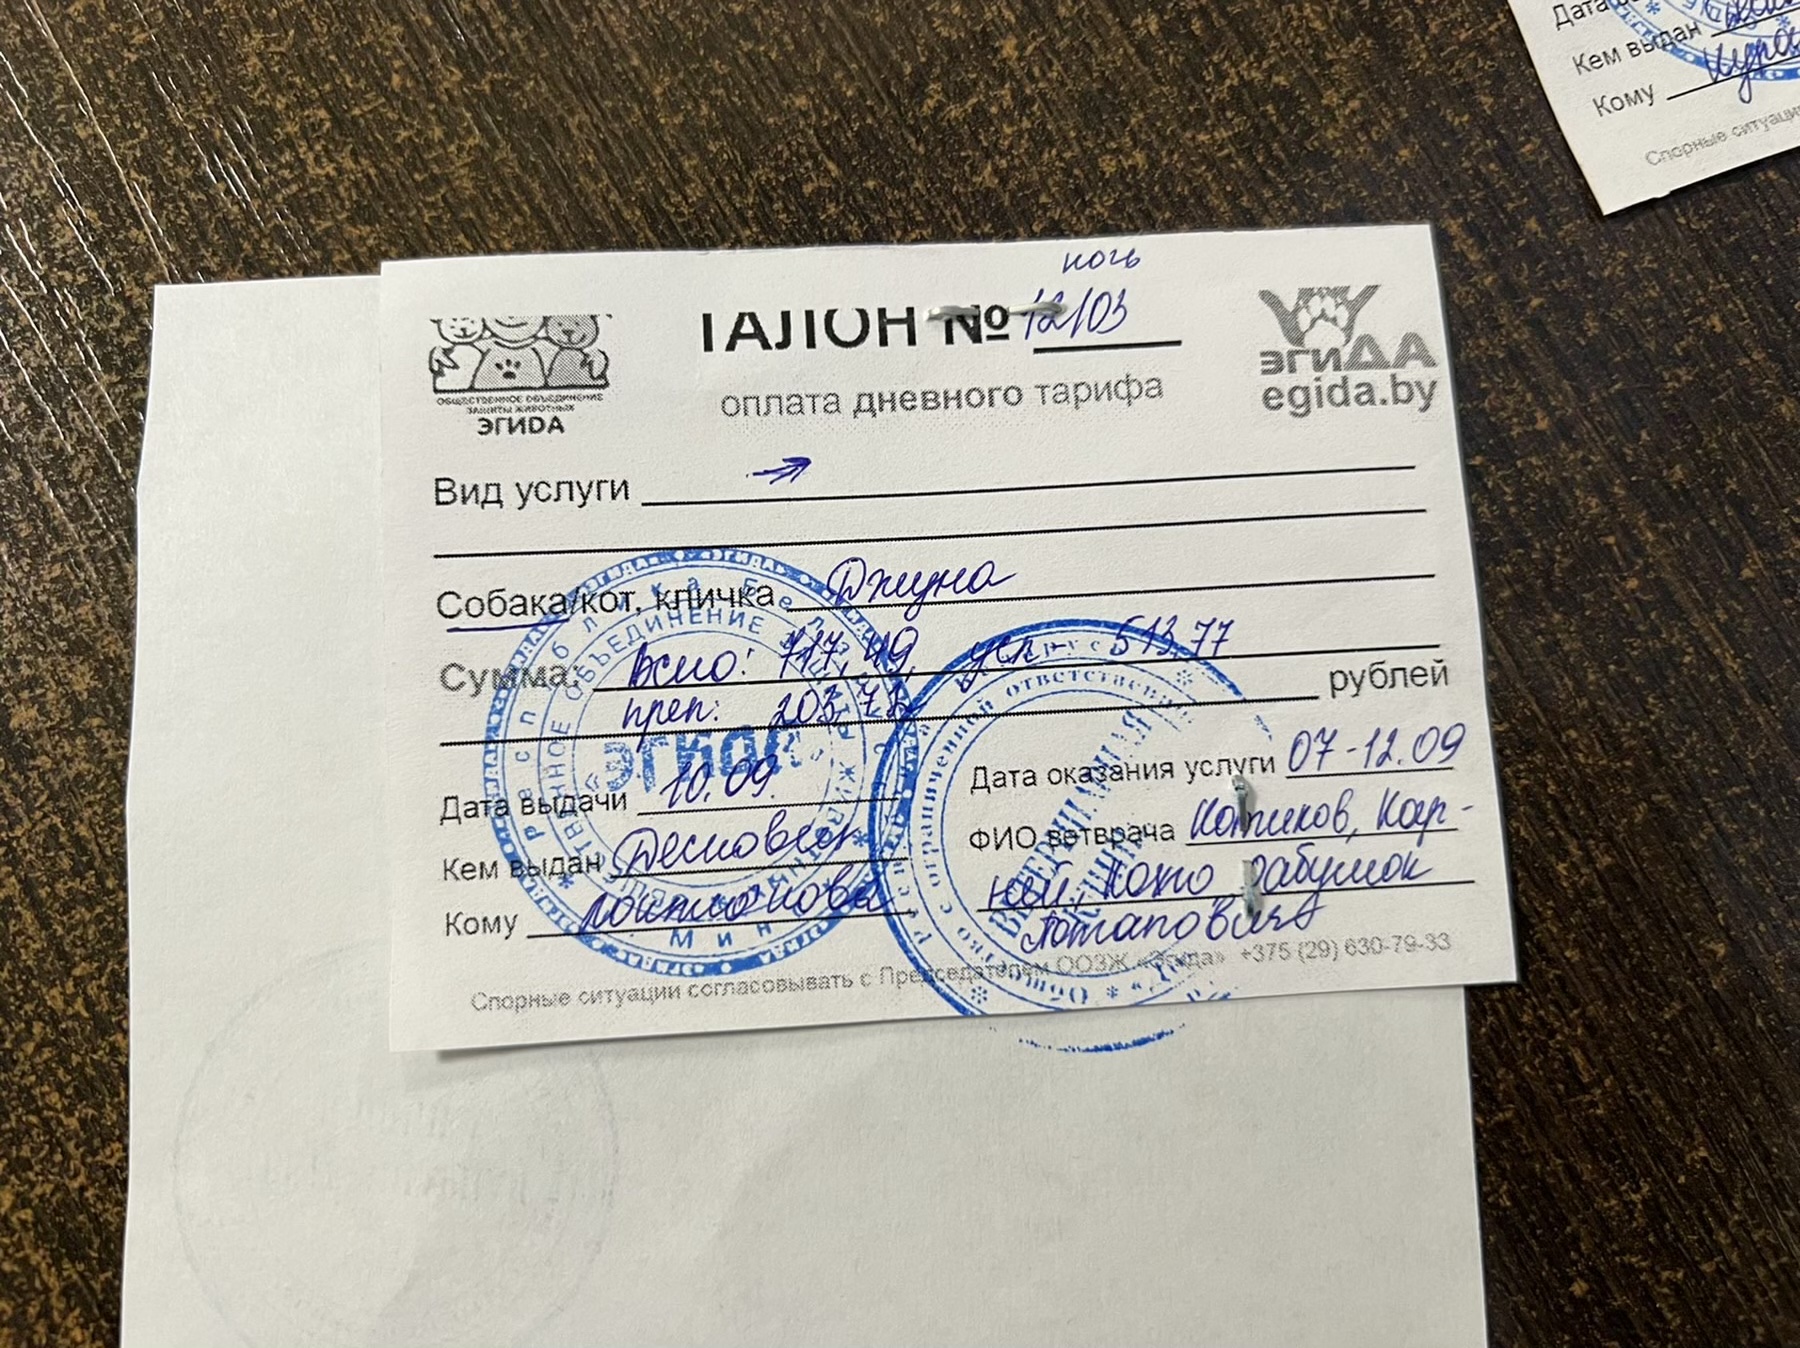 Дата
Кем выдан
Кому
Спорные ситуации
ночь
ТАЛОН № 12/03
оплата дневного тарифа
ОБЩЕСТВЕННОЕ ОБЪЕДИНЕНИЕ
ЗАЩИТЫ ЖИВОТНЫХ
ЭГИДА
ЭГИДА
egida.by
Вид услуги →
Собака/кот, кличка Джуна
Сумма: Всего: 717,49, усл- 513,77
преп: 203,72 рублей
Дата выдачи 10.09.
Кем выдан
Кому
Дата оказания услуги 07-12.09
ФИО ветврача Котиков, Кар-
ней,
Потапович
Спорные ситуации согласовывать с Председателем ООЗЖ «Эгида» +375 (29) 630-79-33
«ЭГИДА»
Республика Беларусь
ОБЩЕСТВЕННОЕ ОБЪЕДИНЕНИЕ ЗАЩИТЫ ЖИВОТНЫХ
Минск
ВЕТЕРИНАРНАЯ
КЛИНИКА